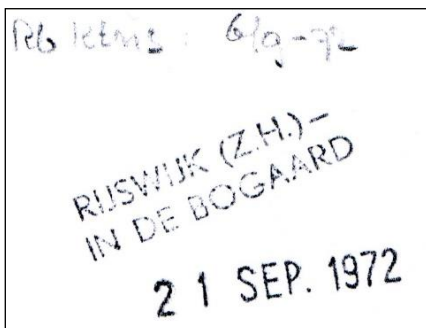 6/9-72
RIJSWIJK (Z.H.)-
IN DE BOGAARD
2 1 SEP. 1972